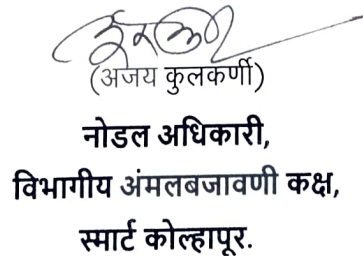 (अजय कुलकर्णी)
नोडल अधिकारी,
विभागीय अंमलबजावणी कक्ष,
स्मार्ट कोल्हापूर.